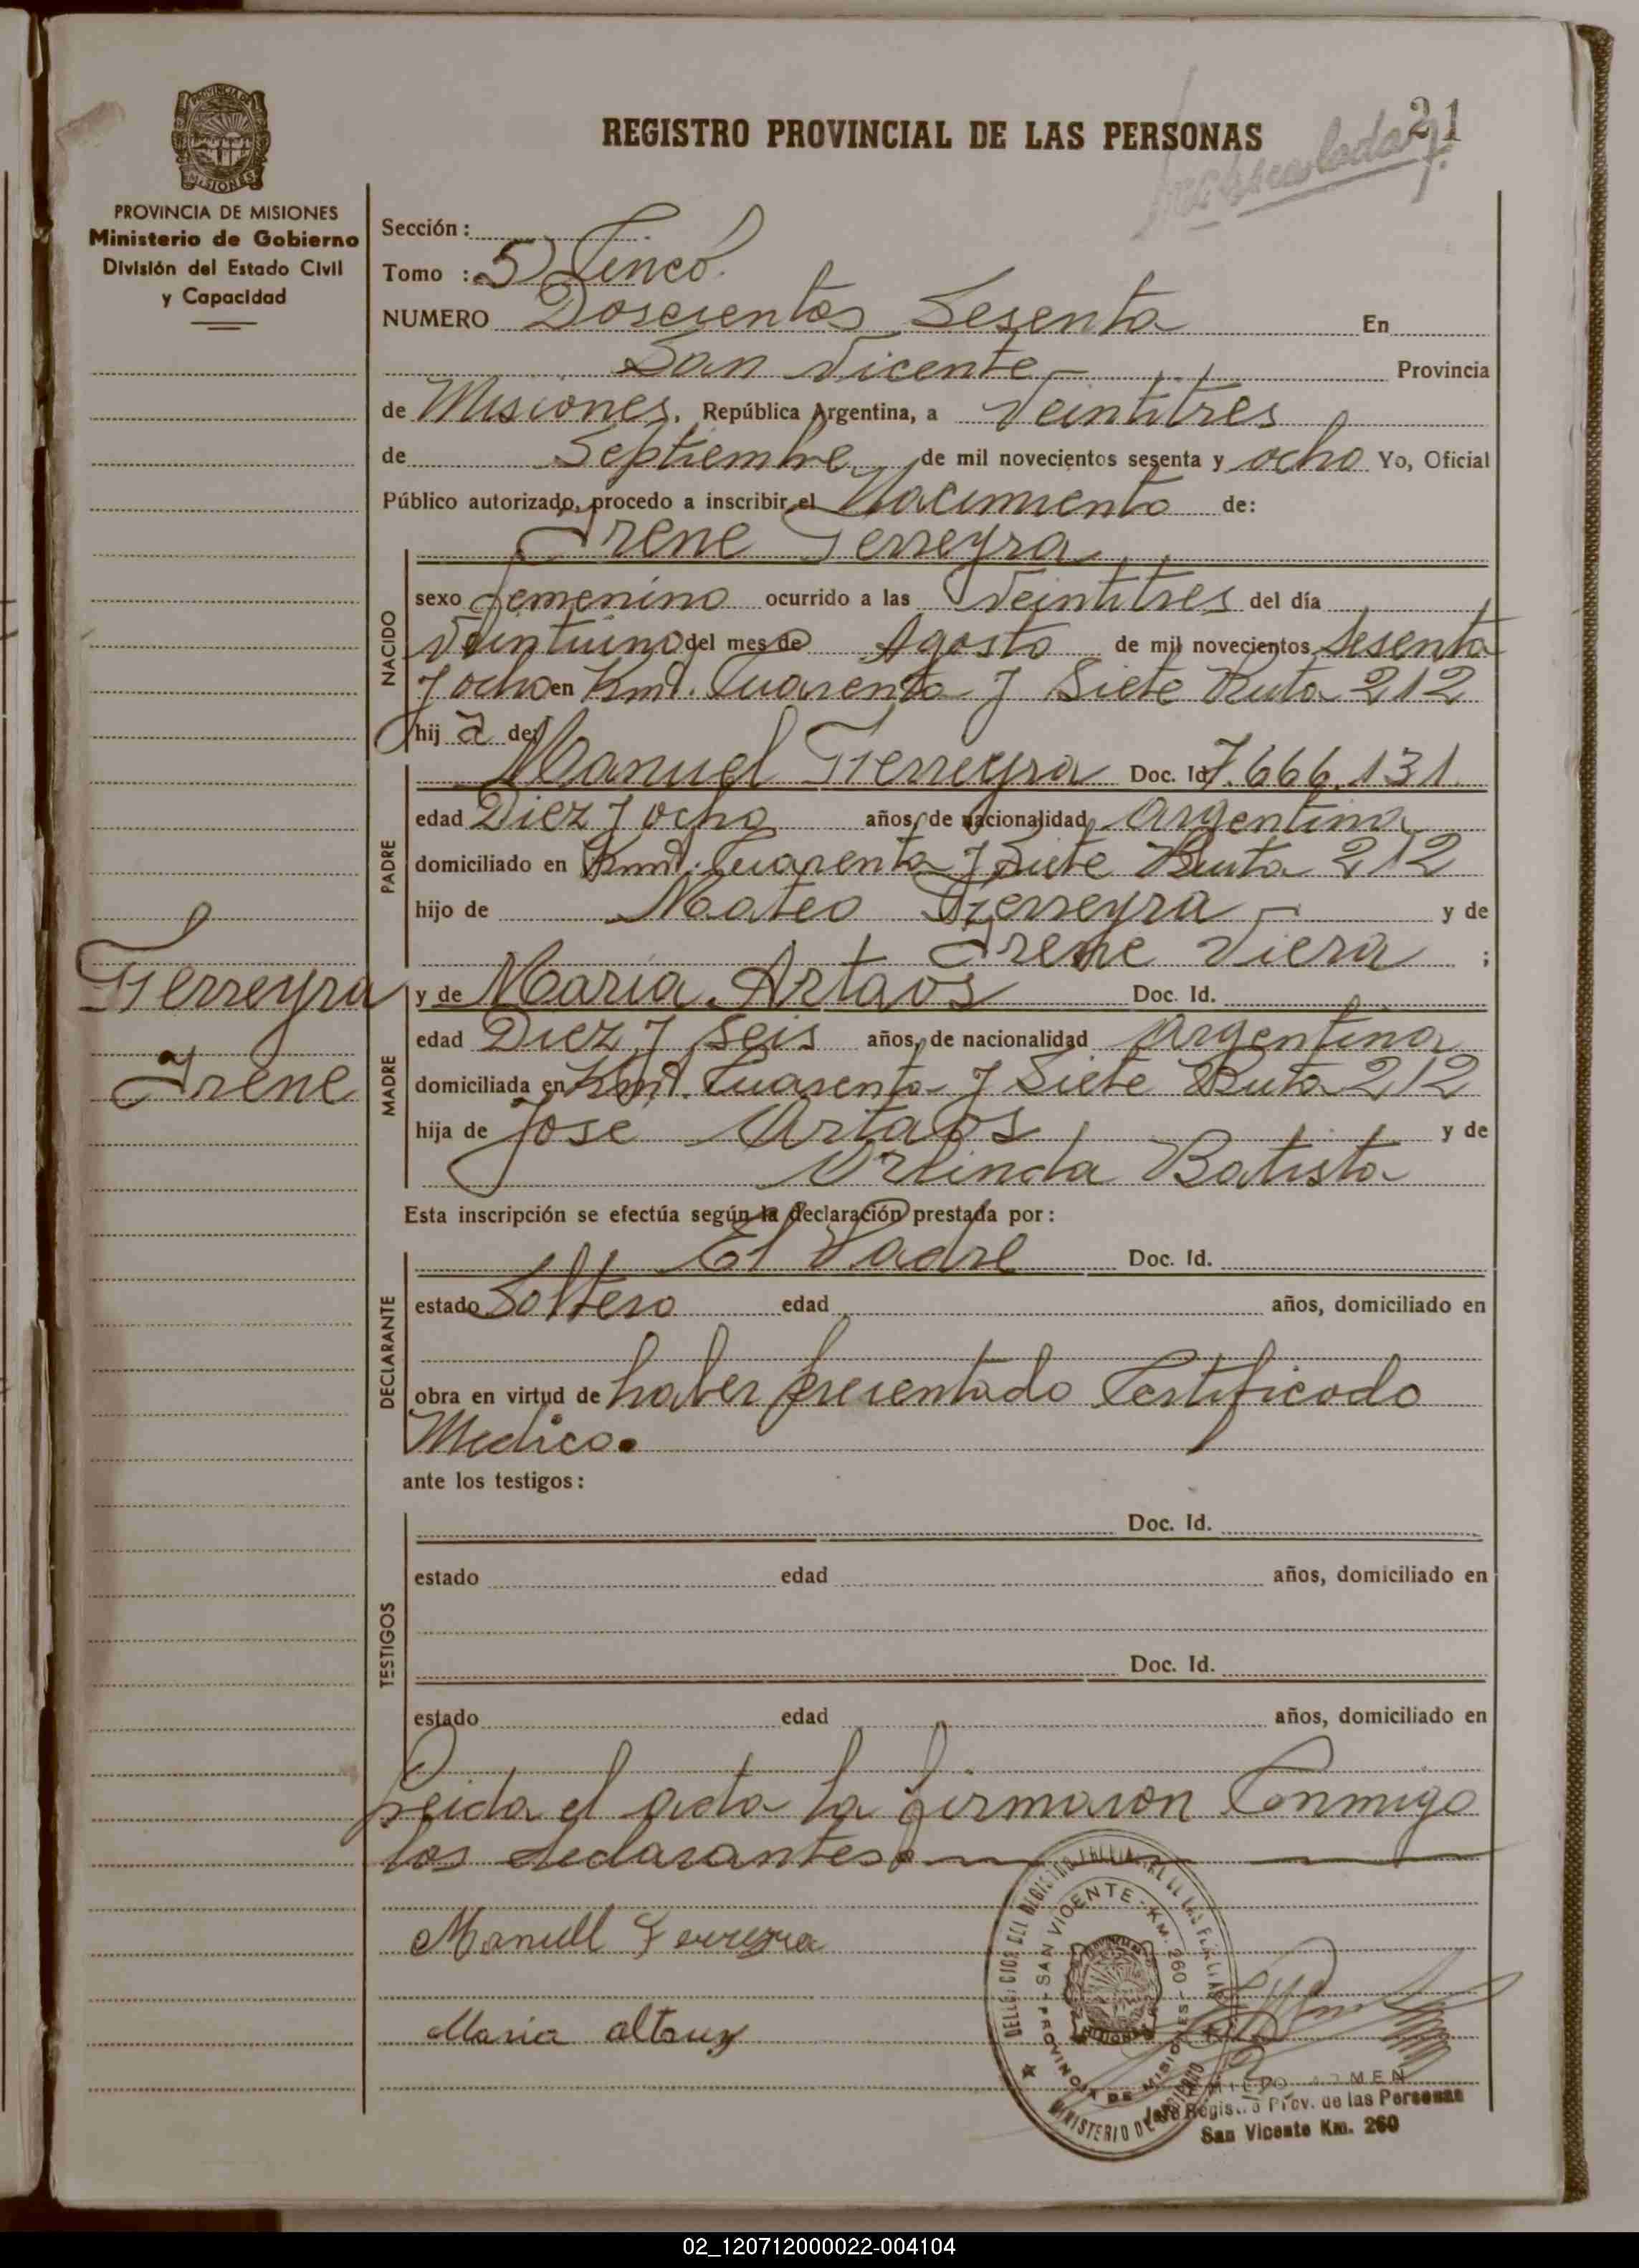 21
REGISTRO PROVINCIAL DE LAS PERSONAS
PROVINCIA DE MISIONES
MISIONES
PROVINCIA DE MISIONES
Ministerio de Gobierno
División del Estado Civil
y Capacidad
Sección :
Tomo : 5) Cinco.
NUMERO Doscientos Sesenta En
San Vicente - Provincia
de Misiones. República Argentina, a Veintitres
de Septiembre de mil novecientos sesenta y ocho Yo, Oficial
Público autorizado, procedo a inscribir el Nacimiento de:
Irene Ferreyra
NACIDO
sexo femenino ocurrido a las Veintitres del día
Veintiuno del mes de Agosto de mil novecientos Sesenta
y ocho en Kmt. Cuarenta y Siete Ruta 212
hij a de:
PADRE
Manuel Ferreyra Doc. Id. 7.666.131
edad Diez y ocho años, de nacionalidad Argentina
domiciliado en Kmt. Cuarenta y Siete Ruta 212
hijo de Mateo Ferreyra - y de
Irene Viera ;
Ferreyra
Irene
MADRE
y de Maria Artaos Doc. Id.
edad Diez y Seis años, de nacionalidad Argentina
domiciliada en Kmt. Cuarenta y Siete Ruta 212
hija de Jose Artaos y de
Orlinda Batista
Esta inscripción se efectúa según la declaración prestada por :
DECLARANTE
El Padre Doc. Id.
estado Soltero edad años, domiciliado en
obra en virtud de haber presentado Certificado
Medico.
ante los testigos :
TESTIGOS
Doc. Id.
estado edad años, domiciliado en
Doc. Id.
estado edad años, domiciliado en
Leida el acta la firmaron Conmigo
los declarantes
Manuel Ferreyra
Maria altauz
SAN VICENTE - KM. 260
PROVINCIA DE MISIONES
MINISTERIO DE
Jefe Registro Prov. de las Personas
San Vicente Km. 260
02_120712000022-004104